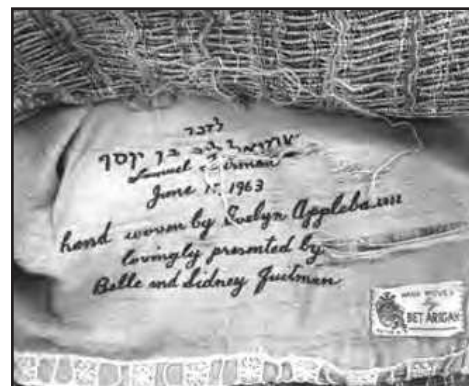 לזכר
שמואל בן יוסף
Samuel
June 1963
hand woven by Evelyn Applebaum
lovingly presented by
Belle and Sidney Gutman
HAND WOVEN
BET ARIGAH